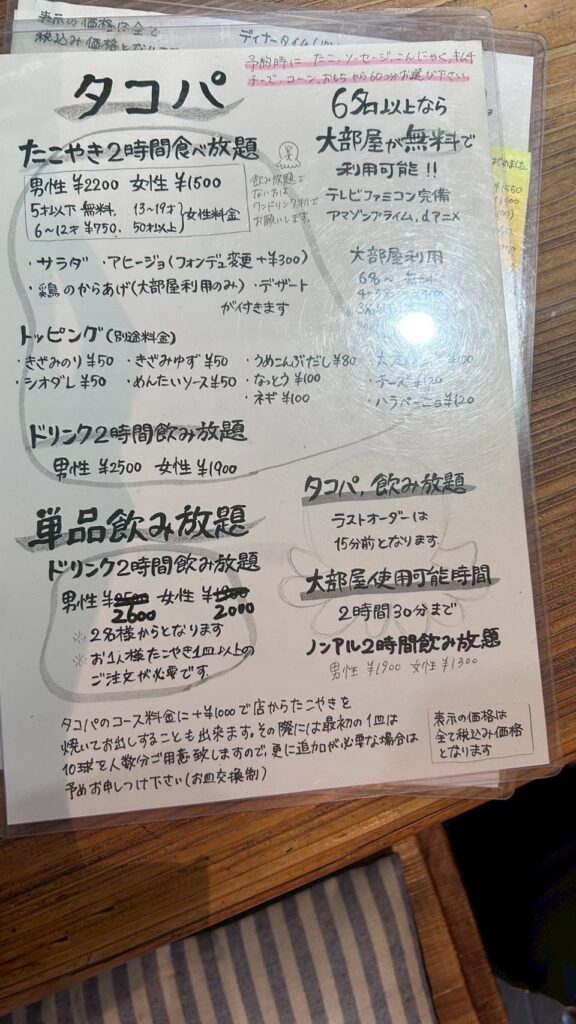 表示の価格は全て
税込み価格となり
ディナータイム
予約時に たこ、ソーセージ、こんにゃく、キムチ
チーズ、コーン、おもちから6つお選び下さい。
タコパ
たこやき2時間食べ放題
男性 ¥2200 女性 ¥1500
5才以下 無料、 13~19才 女性料金
6~12才 ¥750、 50才以上
飲み放題で
ない方は
ワンドリンク制で
お願いします。
・サラダ ・アヒージョ(フォンデュ変更+¥300)
・鶏のからあげ(大部屋利用のみ) ・デザート
が付きます
トッピング(別途料金)
・きざみのり¥50 ・きざみゆず¥50 ・うめこんぶだし¥80
・シオダレ¥50 ・めんたいソース¥50 ・なっとう¥100 ・チーズ¥120
・ネギ¥100 ・ハラペーニョ¥120
ドリンク2時間飲み放題
男性 ¥2500 女性 ¥1900
単品飲み放題
ドリンク2時間飲み放題
男性 ¥2600 女性 2000
※2名様からとなります
※お1人様たこやき1皿以上の
ご注文が必要です
6名以上なら
大部屋が無料で
利用可能!!
テレビファミコン完備
アマゾンプライム、dアニメ
大部屋利用
6名~ 無料
タコパ、飲み放題
ラストオーダーは
15分前となります
大部屋使用可能時間
2時間30分まで
ノンアル2時間飲み放題
男性 ¥1900 女性 ¥1300
タコパのコース料金に+¥1000で店からたこやきを
焼いてお出しすることも出来ます。その際には最初の1皿は
10球を人数分ご用意致しますので、更に追加が必要な場合は
予めお申しつけ下さい(お皿交換制)
表示の価格は
全て税込み価格
となります